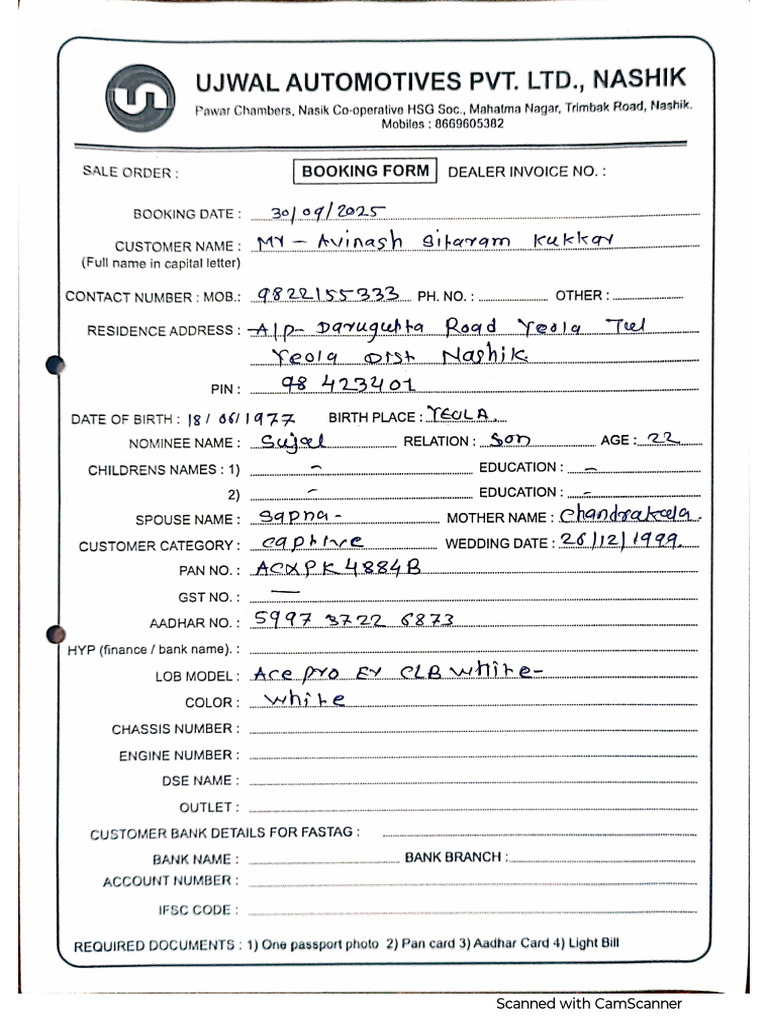 UJWAL AUTOMOTIVES PVT. LTD., NASHIK
Pawar Chambers, Nasik Co-operative HSG Soc., Mahatma Nagar, Trimbak Road, Nashik.
Mobiles : 8669605382
SALE ORDER : BOOKING FORM DEALER INVOICE NO. :
BOOKING DATE : 30/09/2025
CUSTOMER NAME : Mr - Avinash Sitaram Kukkar
(Full name in capital letter)
CONTACT NUMBER : MOB.: 9822155333 PH. NO. : OTHER :
RESIDENCE ADDRESS : A/p- Road Yeola Tal
Yeola Dist Nashik
PIN : 423401
DATE OF BIRTH : 18/06/1977 BIRTH PLACE : YEOLA.
NOMINEE NAME : Sujal RELATION : Son AGE : 22
CHILDRENS NAMES : 1) - EDUCATION : -
2) - EDUCATION : -
SPOUSE NAME : Sapna- MOTHER NAME : Chandrakala.
CUSTOMER CATEGORY : captive WEDDING DATE : 26/12/1999.
PAN NO. : ACXPK4884B
GST NO. : —
AADHAR NO. : 5997 3722 6873
HYP (finance / bank name). :
LOB MODEL : Ace pro EV CLB white-
COLOR : white
CHASSIS NUMBER :
ENGINE NUMBER :
DSE NAME :
OUTLET :
CUSTOMER BANK DETAILS FOR FASTAG :
BANK NAME : BANK BRANCH :
ACCOUNT NUMBER :
IFSC CODE :
REQUIRED DOCUMENTS : 1) One passport photo 2) Pan card 3) Aadhar Card 4) Light Bill
Scanned with CamScanner